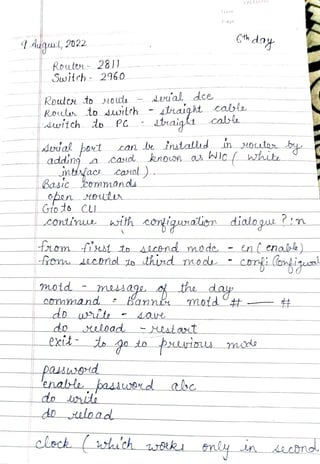 9 August, 2022
6th day
Router - 2811
Switch - 2960
Router to route - serial dce
Router to switch - straight cable
switch to PC - straight cable
serial port can be installed in router by
adding a card known as WIC ( white
interface card ).
Basic Commands
open router
Go to CLI
continue with configuration dialogue ? : n
from first to second mode - en ( enable )
from second to third mode - conf
motd - message of the day
command = Banner motd # — #
do write - save
do reload - restart
exit - to go to previous mode
password
enable password abc
do write
do reload
clock ( which works only in second